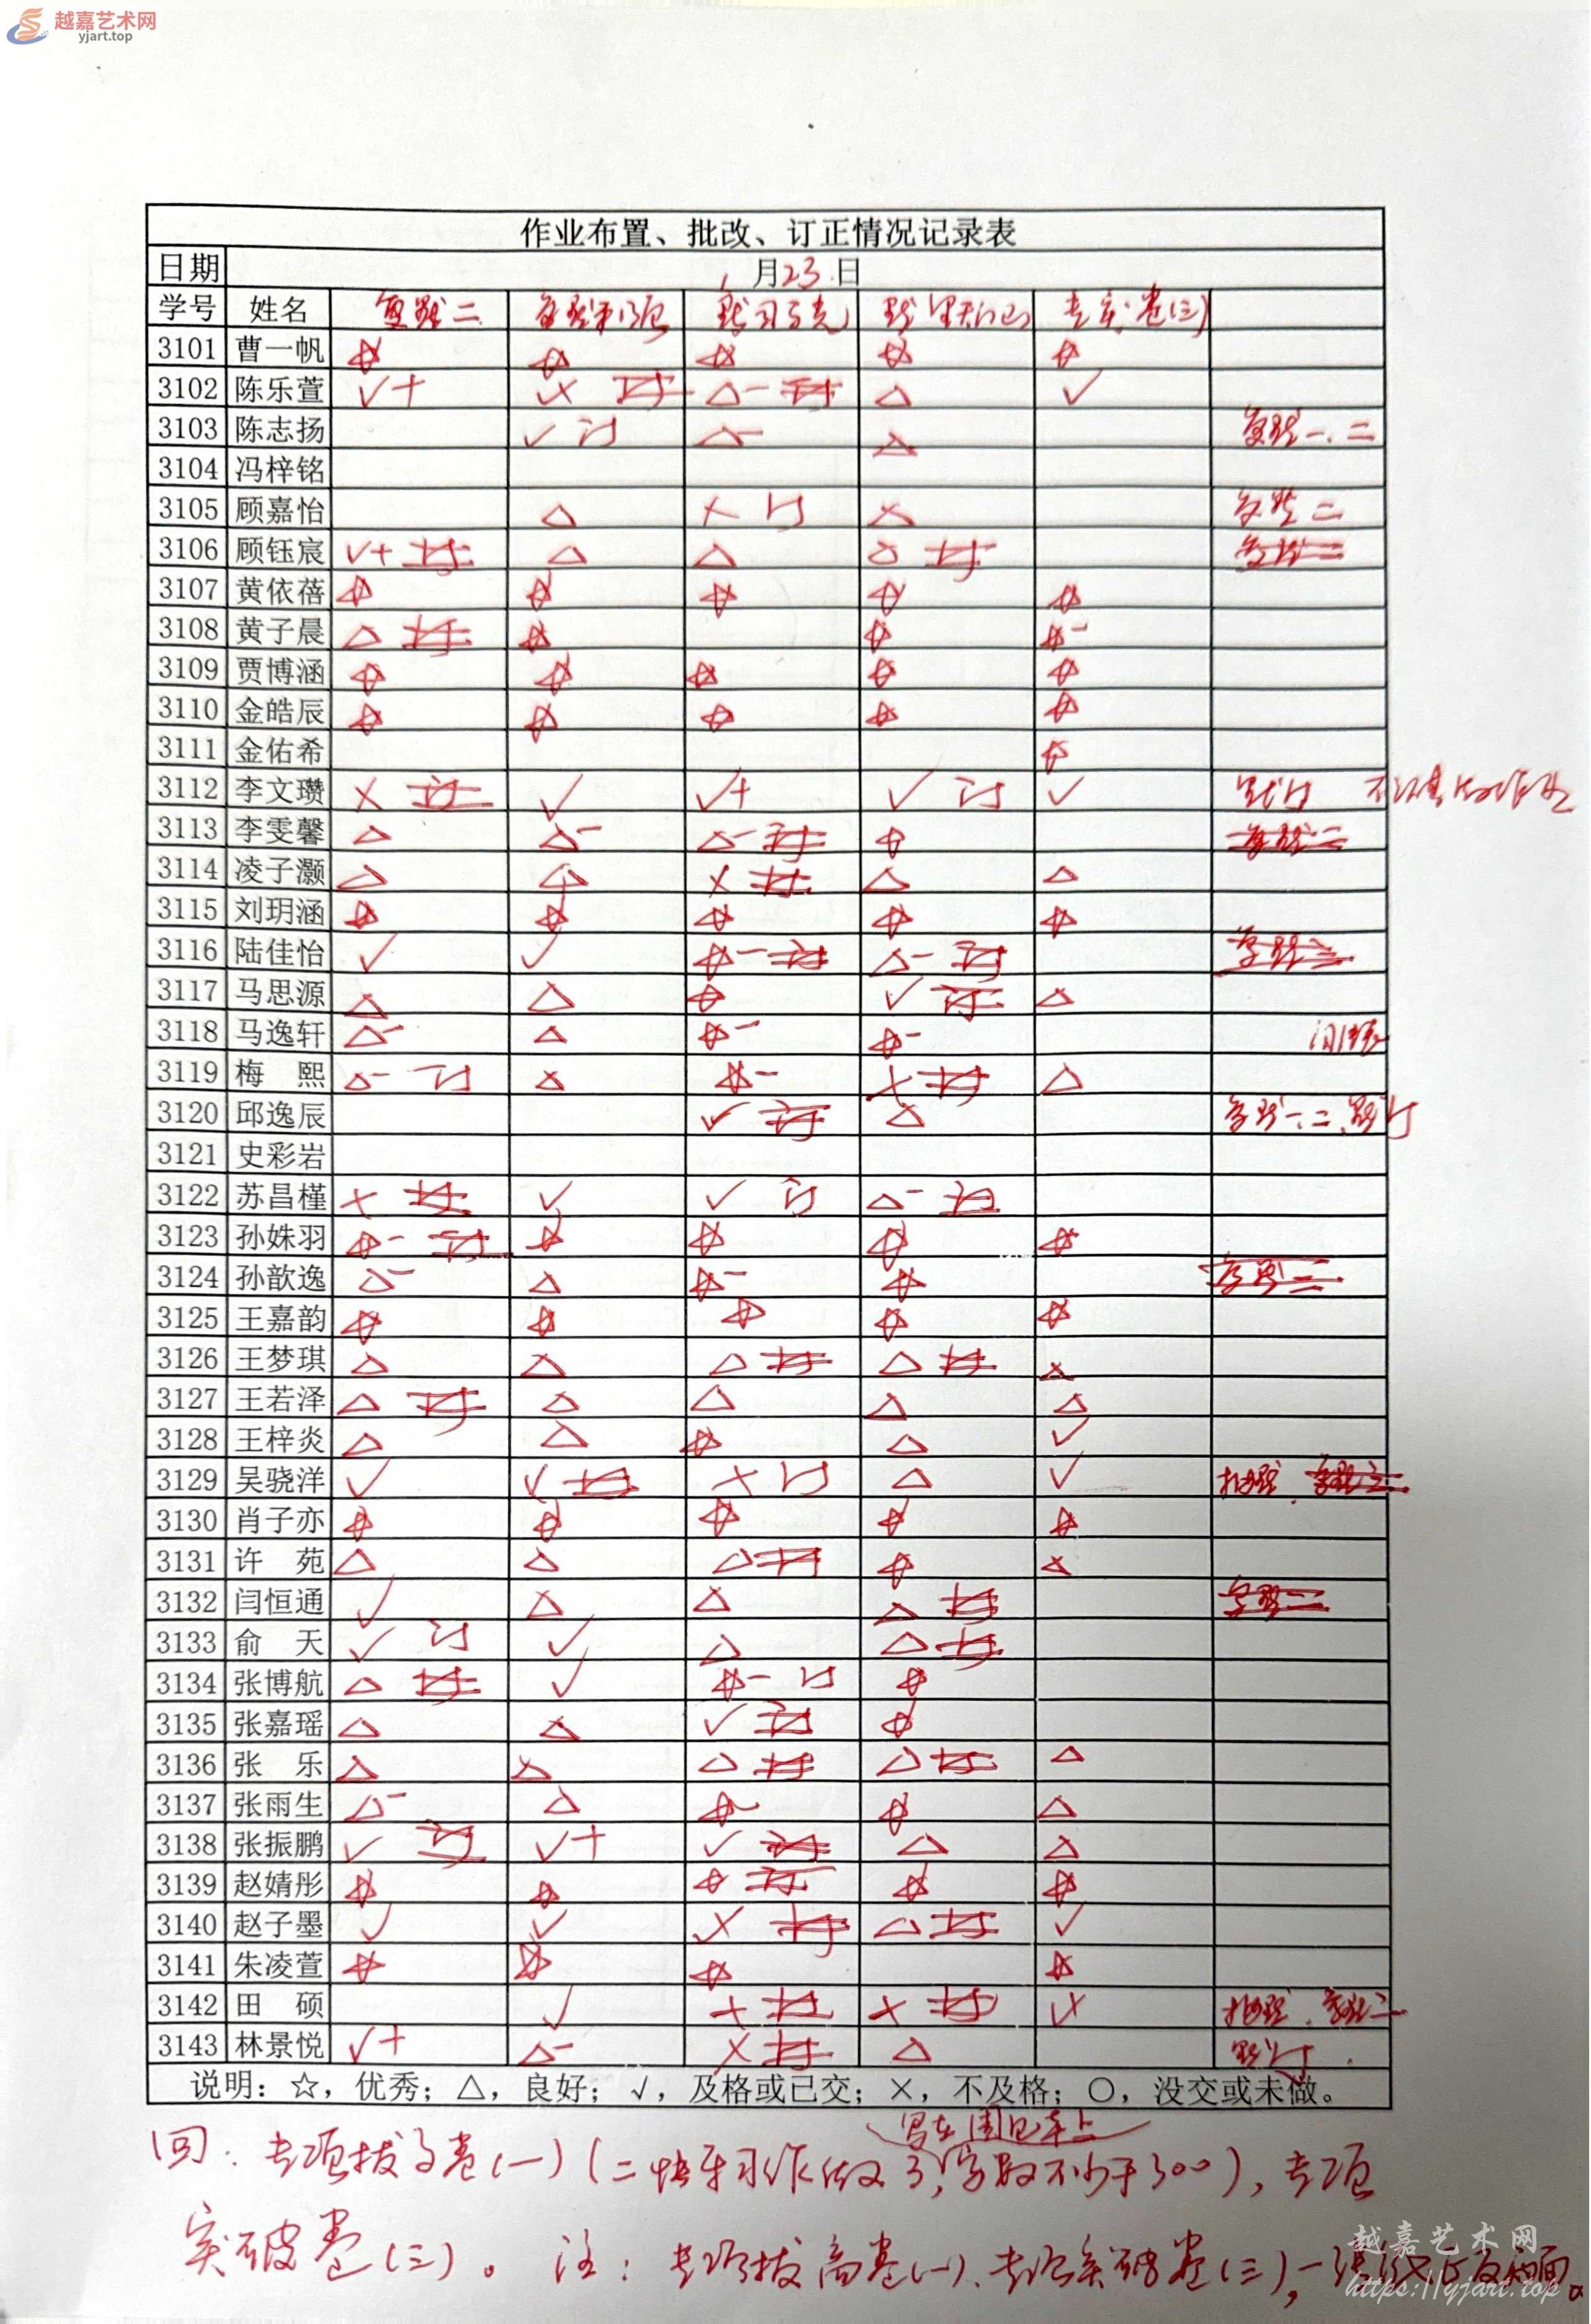 越嘉艺术网
yjart.top
作业布置、批改、订正情况记录表
日期 1月23日
学号 姓名 复默二 专突卷(三)
3101 曹一帆 ☆ ☆ ☆ ☆ ☆
3102 陈乐萱 √+ △- 订 △ √
3103 陈志扬 √ 订 △- △ 复默一、二
3104 冯梓铭
3105 顾嘉怡 △ × 订 复默二
3106 顾钰宸 √+ 订 △ △ 订
3107 黄依蓓 ☆ ☆ ☆ ☆ ☆
3108 黄子晨 △ 订 ☆ ☆ ☆-
3109 贾博涵 ☆ ☆ ☆ ☆ ☆
3110 金皓辰 ☆ ☆ ☆ ☆ ☆
3111 金佑希 ☆
3112 李文瓒 × 订 √ √+ √ 订 √ 默订
3113 李雯馨 △ △- △- 订 ☆ 复默二
3114 凌子灏 △ △ × 订 △ △
3115 刘玥涵 ☆ ☆ ☆ ☆ ☆
3116 陆佳怡 √ √ ☆- 订 △- 订
3117 马思源 △ △ ☆ √ 订 △
3118 马逸轩 △- △ ☆- ☆-
3119 梅熙 △- 订 △ ☆- × 订 △
3120 邱逸辰 √ 订 △ 复默一、二、默订
3121 史彩岩
3122 苏昌槿 × 订 √ √ 订 △- 订
3123 孙姝羽 ☆- 订 ☆ ☆ ☆ ☆
3124 孙歆逸 △- △ ☆- ☆ 复默二
3125 王嘉韵 ☆ ☆ ☆ ☆ ☆
3126 王梦琪 △ △ △ 订 △ 订 △
3127 王若泽 △ 订 △ △ △ △
3128 王梓炎 △ △ ☆ △ √
3129 吴骁洋 √ √ 订 × 订 △ √
3130 肖子亦 ☆ ☆ ☆ ☆ ☆
3131 许苑 △ △ △ 订 ☆ △
3132 闫恒通 √ △ △ △ 订 复默二
3133 俞天 √ 订 √ △ △ 订
3134 张博航 △ 订 √ ☆- 订 ☆
3135 张嘉瑶 △ △ √ 订 ☆
3136 张乐 △ △ △ 订 △ 订 △
3137 张雨生 △- △ ☆- ☆ △
3138 张振鹏 √ 订 √+ √ 订 △ △
3139 赵婧彤 ☆ ☆ ☆ 订 ☆ ☆
3140 赵子墨 √ √ × 订 △ 订 √
3141 朱凌萱 ☆ ☆ ☆ ☆
3142 田硕 √ × 订 × 订 复默二
3143 林景悦 √+ △- × 订 △ 默订
说明：☆，优秀；△，良好；√，及格或已交；×，不及格；○，没交或未做。
写在周记本上
回：专项拔高卷(一)(二 习作做了,字数不少于300),专项
突破卷(三)。注：专项拔高卷(一)、专项突破卷(三),一 正反两面。
越嘉艺术网
https://yjart.top